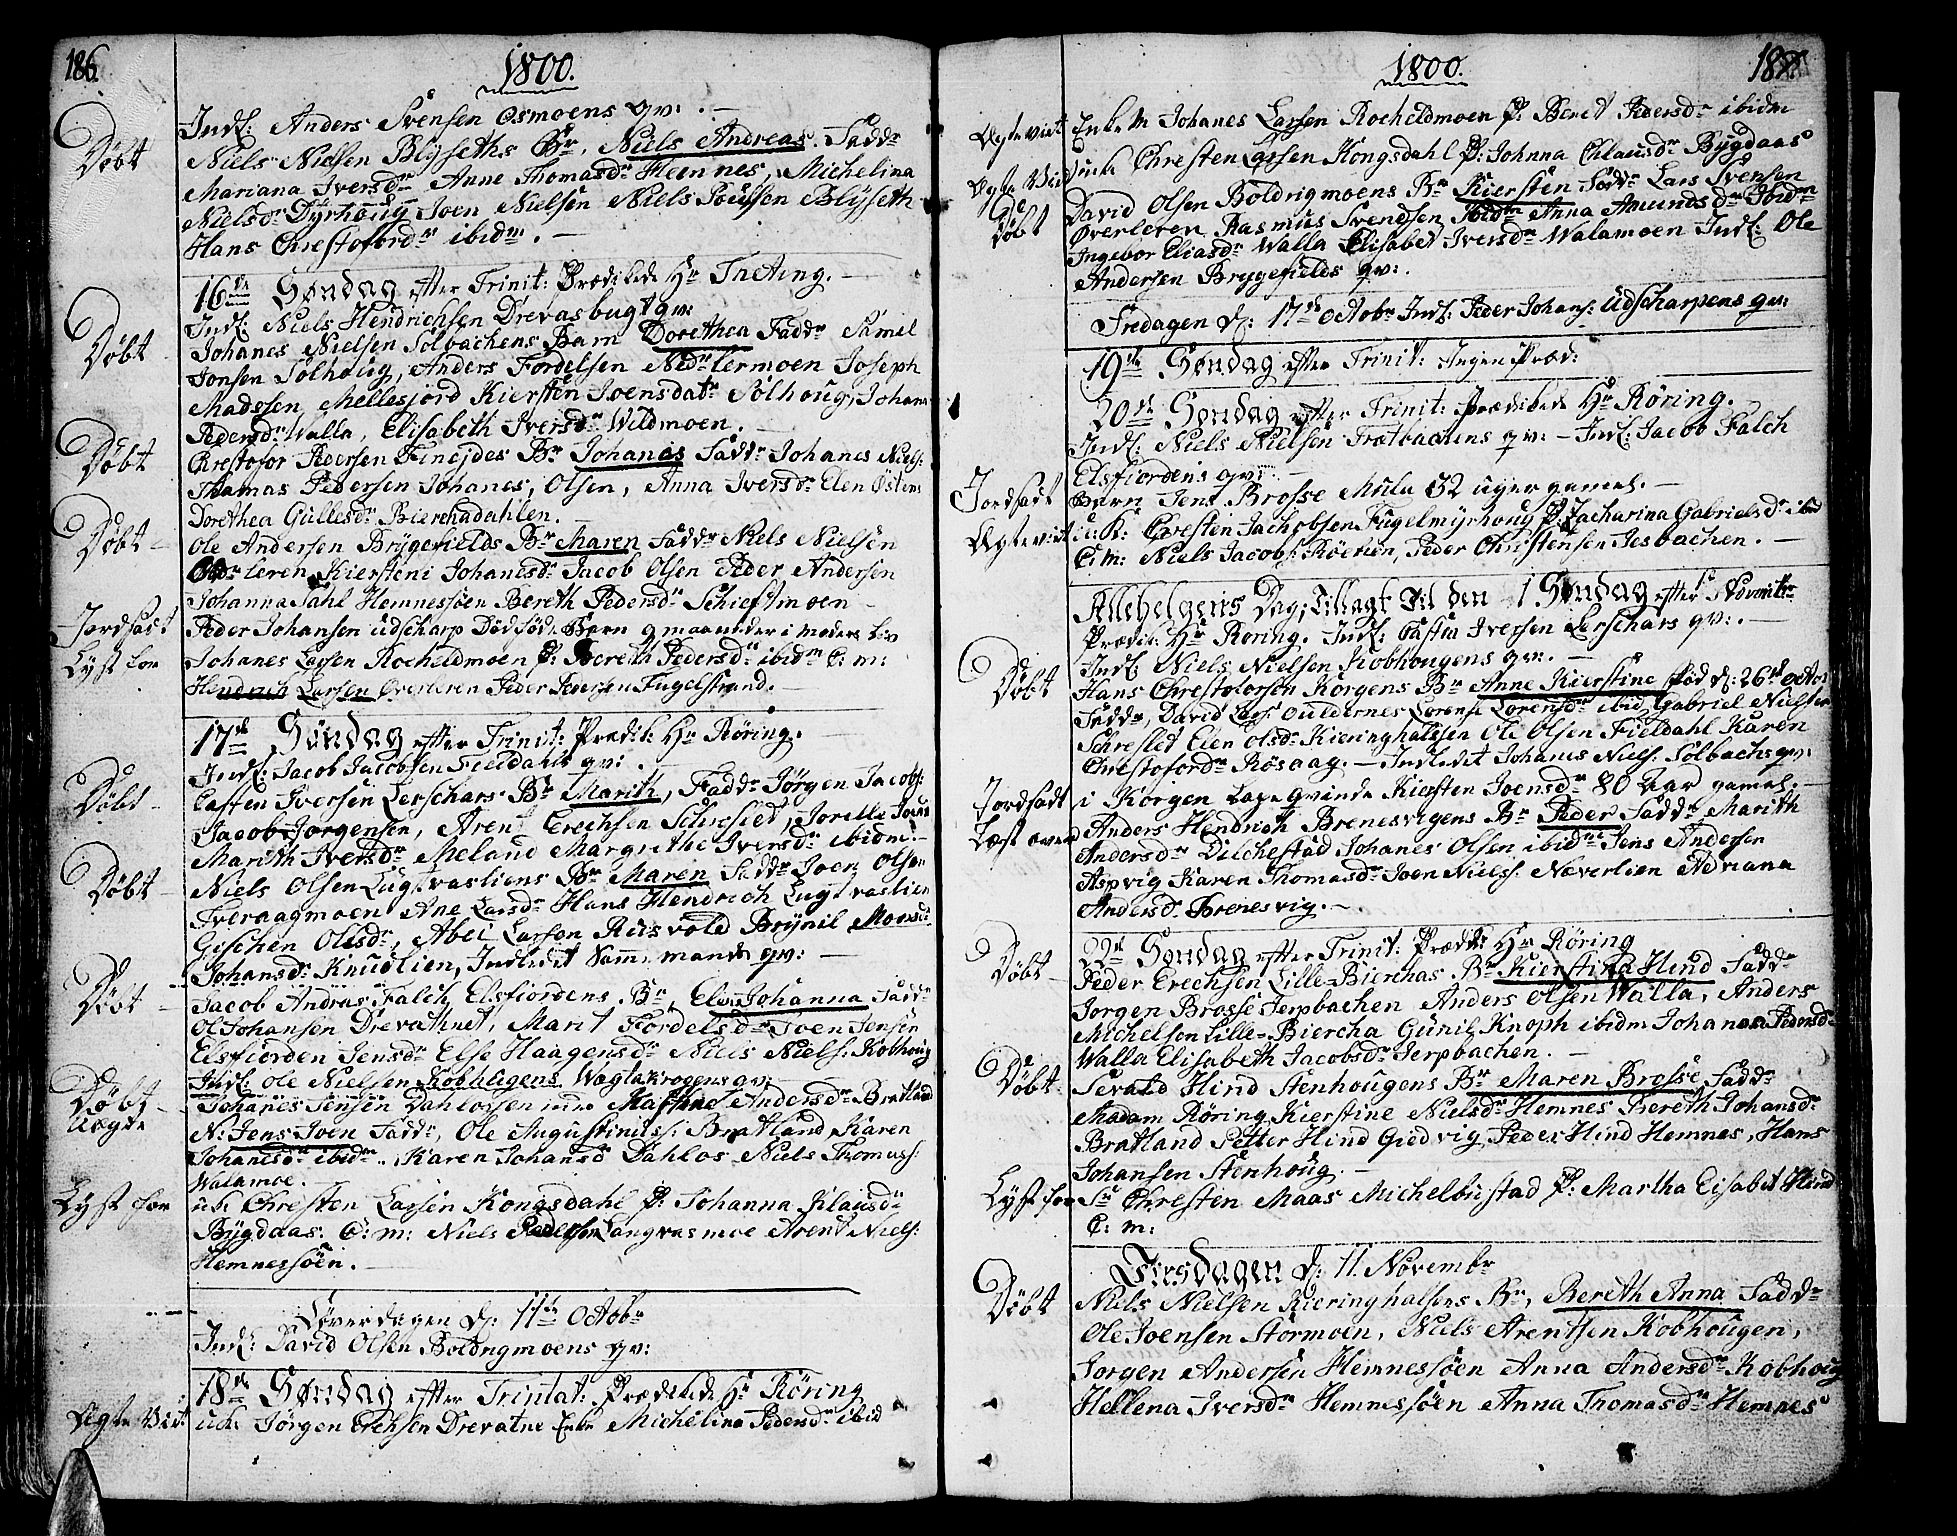 186.
1800.
Indl: Anders Svensen Osmoens qv: . —
Døbt
Niels Nielsen Blyseths Br, Niels Andreas. Faddr
Mariana Iversdr Anne Thomasdr Hemnes, Michelina
Nielsdr Dyrhoug Joen Nielsen Niels Poulsen Blyseth
Hans Chrestofordr ibidm. —
16de Søndag efter Trinit: Prædikede Hr Theting. —
Indl: Niels Hendrichsen Drevasbugt qv:
Døbt
Johanes Nielsen Solbachens Barn Dorethea Faddr Samel
Jonsen Solhoug, Anders Fordelsen Nedr Lermoen Joseph
Madssen Mellesjord Kiersten Joensdatr Solhoug, Johan
Pedersdr Walla, Elisabeth Iversdr Wildmoen. —
Døbt
Chrestofor Pedersen Finejdes Br Johanes Faddr Johanes Niels:
Thomas Pedersen Johanes, Olsen, Anna Iversdr Elen Østens
Dorethea Gullesdr Bierchadahlen. —
Døbt
Ole Andersen Brygefields Br Maren Faddr Niels Nielsen
leren Kiersteni Johanesdr Jacob Olsen Peder Andersen
Johanna Dahl Hemnessøen Bereth Pedersdr Schieftmoen
Jordfæst
Peder Johansen udscharp Dødfød Barn 9 maaneder i moders Liv
Lyst for
Johanes Larsen Rocheldmoen P: Bereth Pedersdr ibidm C: m:
Hendrich Larsen Overleren Peder Pedersen Fugelstrand. —
17de Søndag efter Trinit: Prædik: Hr Røring. —
Indl: Jacob Jacobsen Fieldahls qv: . —
Døbt
Casten Iversen Lerschars Br Marith, Faddr Jørgen Jacobs:
Jacob Jorgensen, Arent Erechsen Schreslet, Jorelle
Marith Iversdr Meland Margrethe Iversdr ibidm. —
Døbt
Niels Olsen Lugtvasliens Br Maren Faddr Joen Olsen
Tveraagmoen Ane Larsdr Hans Hendrich Lugtvaslien
Geschen Olesdr, Abel Larson Riisvold Brynil Monsd:
Johansdr Knudlien, Indledet Samme mands qv: —
Døbt
Jacob Andras Falch Elsfiordens Br, Elen Johanna Faddr
Ol Johansen Drevathnet, Marit Fordelsdr Joen Jonsen
Elsfiorden Jensdr Else Haagensdr Niels Niels: Kobhoug
Indl: ole Nielsen Kobhugens Wagtakrogens qv: —
Døbt
Johanes Jensen Dahlossen Kathrine Andersdr Bratland
Uægte
N: Jens Joen Faddr, Ole Augustinus: Bratland Karen
Johanesdr ibidm. Karen Johansd Dahlos Niels Thomass:
Walamoe. —
Lyst for
uk: Chresten Larsen Kongsdahl P: Johanna Klausdr
Bygdaas. C: m: Niels Pedersen Langvasmoe Arent Niels:
Hemnessøen. —
Løverdagen d: 11te Octobr
Indl: David Olsen Boldrigmoens qv:
18de Søndag efter Trinitat: Prædikede Hr Røring
Ægte Viet
uck: Jørgen Erchsen Drevatne Enke Michelina Pedersdr ibid
1800.
Ægteviet
Enkem Johanes Larsen Rocheldmoen P: Beret Pedersdr ibidm
Ægte Vied
Chresten Larsen Kongsdahl P: Johnna Chlausdr Bygdaas
Døbt
David Olsen Boldrigmoens Br Kiersten Faddr Lars Svensen
Øverleren Rasmus Svendsen Ibidm Anna Amundsdr Ibidm
Ingebor Eliasdr Walla Elisabet Iversdr Walamoen Indl: Ole
Andersen Brygefields qv:.
Fredagen d: 17de Octobr Indl: Peder Johans: Udscharpens qv:
19de Søndag efter Trinit: Ingen Præd:
20de Søndag efter Trinit: Prædikede Hr Røring. —
Indl: Niels Nielsen Trætbachens qv: — Indl: Jacob Falch
Elsfiordens qv: —
Jordfæst
Barn Jens Brosse Mula 32 uger gamel. —
Ægteviet
u: K: Chresten Jachobsen Fugelmyrhoug P: Zacharina Gabrielsdr ibid
C: m: Niels Jacobs: Røelien, Peder Christensen Jesbachen. —
Allehelgens Dag, Tillagt Til den 1 Søndag efter
Prædik: Hr Røring. Indl: Casten Iversen Lerschars qv: . —
Indl: Niels Nielsen Kobhougens qv: —
Døbt
Hans Chrestofersen Korgens Br Anne Kierstine fød d: 26de Octobr
Faddr, David Lars: Ouldernes Lorense Lorensdr ibid, Gabriel Nielsen
Schreslet Elen Olsdr Kieringhalssen Ole Olsen Fieldahl Karen
Chrestofordr Røsaag. — Indledet Johanes Niels: Solbachs qv:
Jordfæst
i Korgen Lape Qvinde Kiersten Joensdr 80 Aar gamel. —
Læst over
Anders Hendrich Brenesvigens Br Peder Faddr Marith
Andersdr Dilchestad Johanes Olsen ibidm Jens Andersen
Aspvig Karen Thomasdr Joen Niels: Næverlien Adriana
Andersdr Brenesvig. —
22de Søndag efter Trinit: Prædk: Hr Røring
Døbt
Peder Erechsen Lille Bierchas Br Kierstina Hind Faddr
Jorgen Brosse Jerpbachen Anders Olsen Walla, Anders
Michelsen Lille-Biercha Gunil Knoph ibidm Johanna Pedersdr
Walla Elisabeth Jacobsdr Jerpbachen. —
Døbt
Sevald Hind Stenhougens Br Maren Brosse Faddr
Madam Røring Kierstine Nielsdr Hemnes Bereth Johansdr
Bratland Petter Hind Giedvig Peder Hind Hemnes, Hans
Johansen Stenhoug. —
Lyst for
Chresten Maas Michelbustad P: Martha Elisabet Hind
C: m:
Tirsdagen d: 11. Novembr
Døbt
Niels Nielsen Kieringhalsens Br, Bereth Anna Faddr
Ole Joensen Stormoen, Niels Arentsen Kobhougen,
Jorgen Andersen Hemnessøen Anna Andersdr Kobhoug
Hellena Iversdr Hemnessøen Anna Thomasdr Hemnes